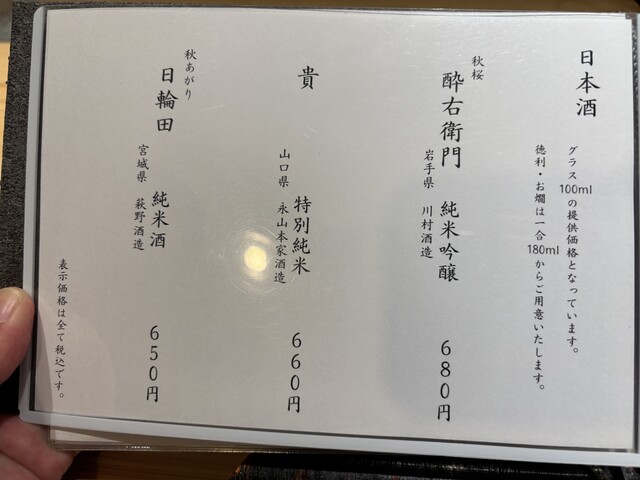 日本酒
グラス100mlの提供価格となっています。
徳利・お燗は一合180mlからご用意いたします。
秋桜
酔右衛門 純米吟醸 680円
岩手県 川村酒造
貴 特別純米 660円
山口県 永山本家酒造
秋あがり
日輪田 純米酒 650円
宮城県 萩野酒造
表示価格は全て税込です。